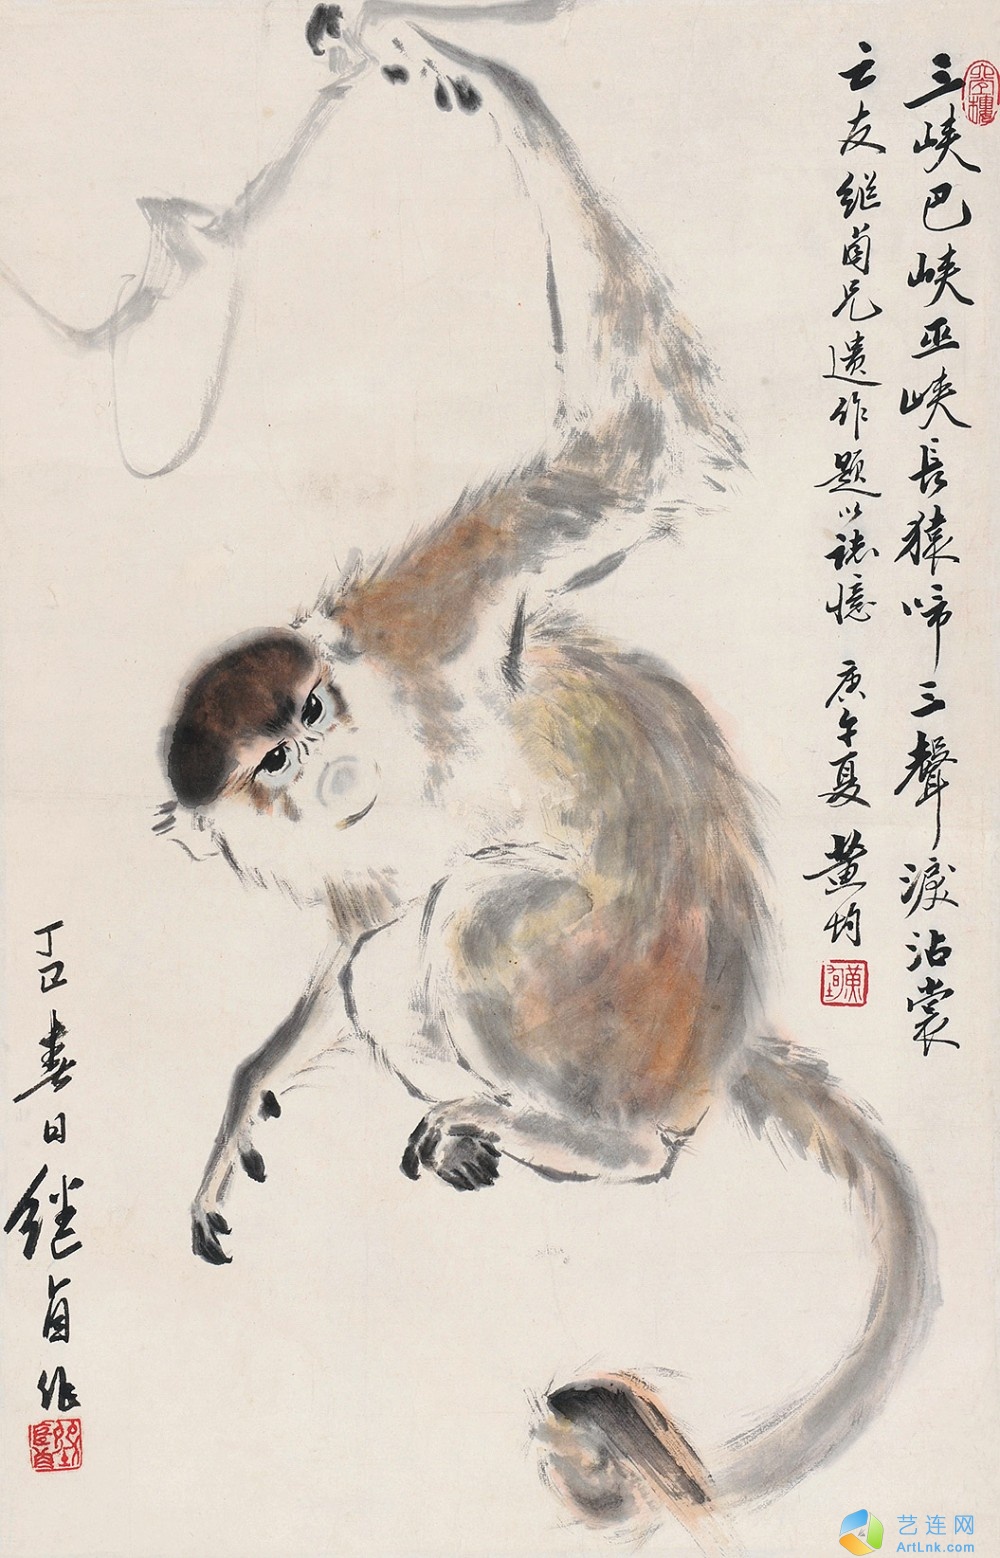 三峡巴峡巫峡長猿啼三聲淚沾裳
亡友继卣兄遗作题以誌憶 庚午夏 黄均
黄均
丁巳春日继卣作
艺连网
ArtLnk.com